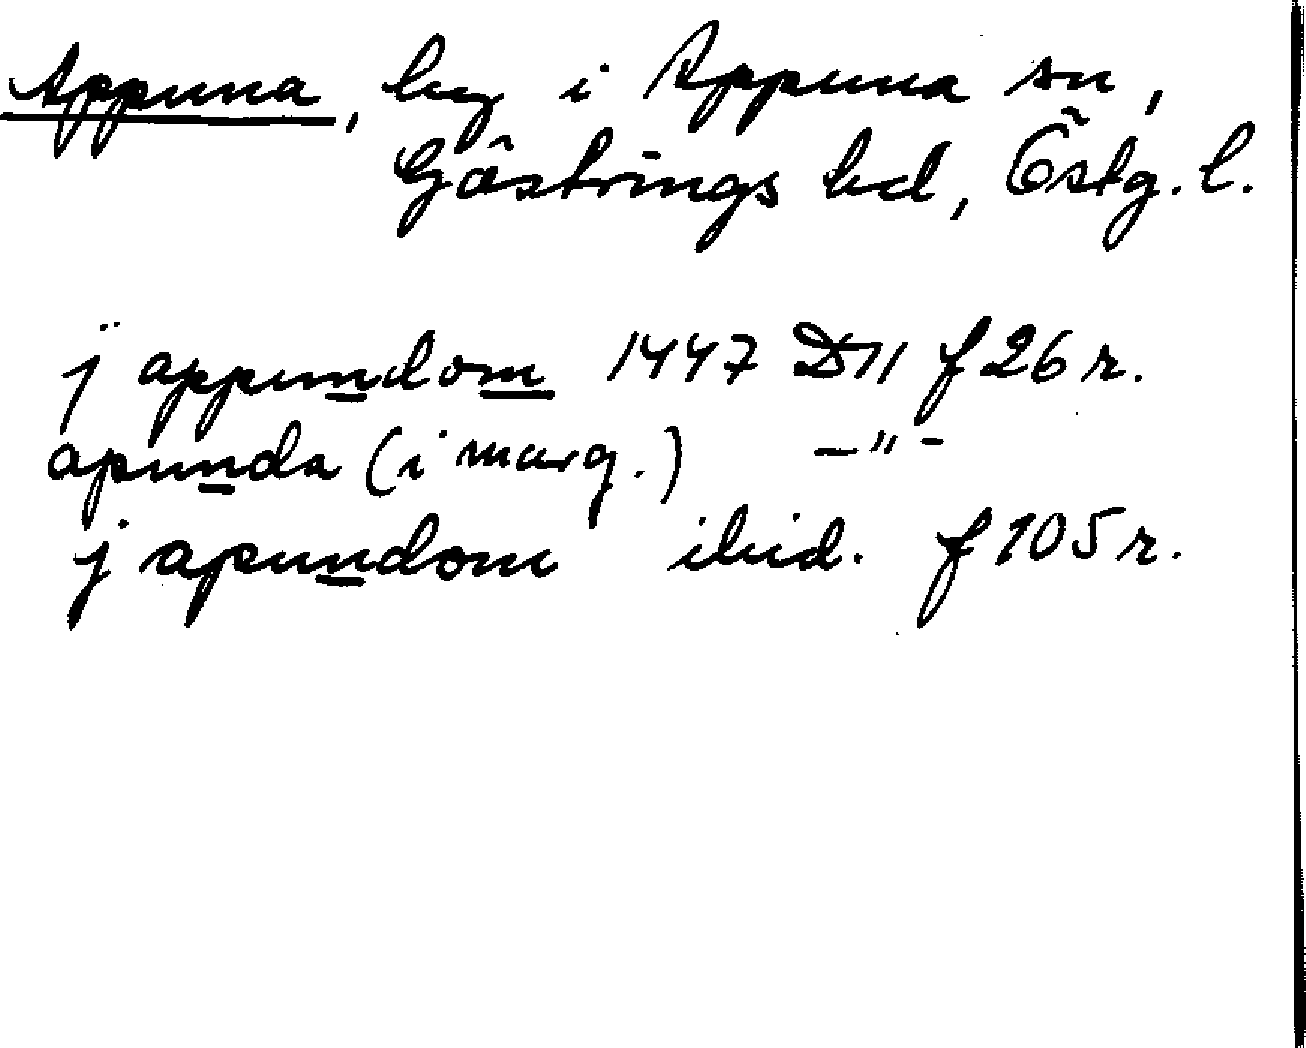 Appuna, by i Appuna sn,
Göstrings hd, Östg. l.
j appundom 1447 D11 f 26 r.
apunda (i marg.) —"—
j apundom ibid. f 105 r.